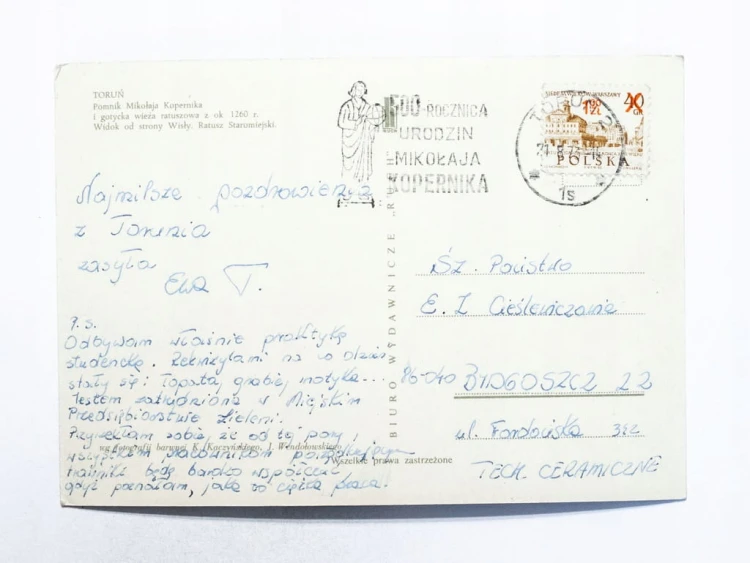 TORUŃ
Pomnik Mikołaja Kopernika
i gotycka wieża ratuszowa z ok. 1260 r.
Widok od strony Wisły. Ratusz Staromiejski.
500-ROCZNICA
URODZIN
MIKOŁAJA
KOPERNIKA
TORUŃ
1s
POLSKA
40
GR
BIURO WYDAWNICZE „RUCH"
Najmilsze pozdrowienia
z Torunia
zasyła
Ewa T.
P.S.
Odbywam właśnie praktykę
studencką. Rekwizytami na co dzień
stały się: łopata, grabie, motyka...
Jestem zatrudniona w Miejskim
Przedsiębiorstwie Zieleni.
Przyrzekłam sobie, że od tej pory,
wszystkim pracownikom
trawniki będę bardzo współczuć,
gdyż poznałam, jaka to ciężka praca!
wg fotografii barwnej K. Kaczyńskiego, J. Wendołowskiego
Wszelkie prawa zastrzeżone
Sz. Państwo
E. Z Cieślewiczowie
BYDGOSZCZ 22
ul. Fordońska
TECH. CERAMICZNE